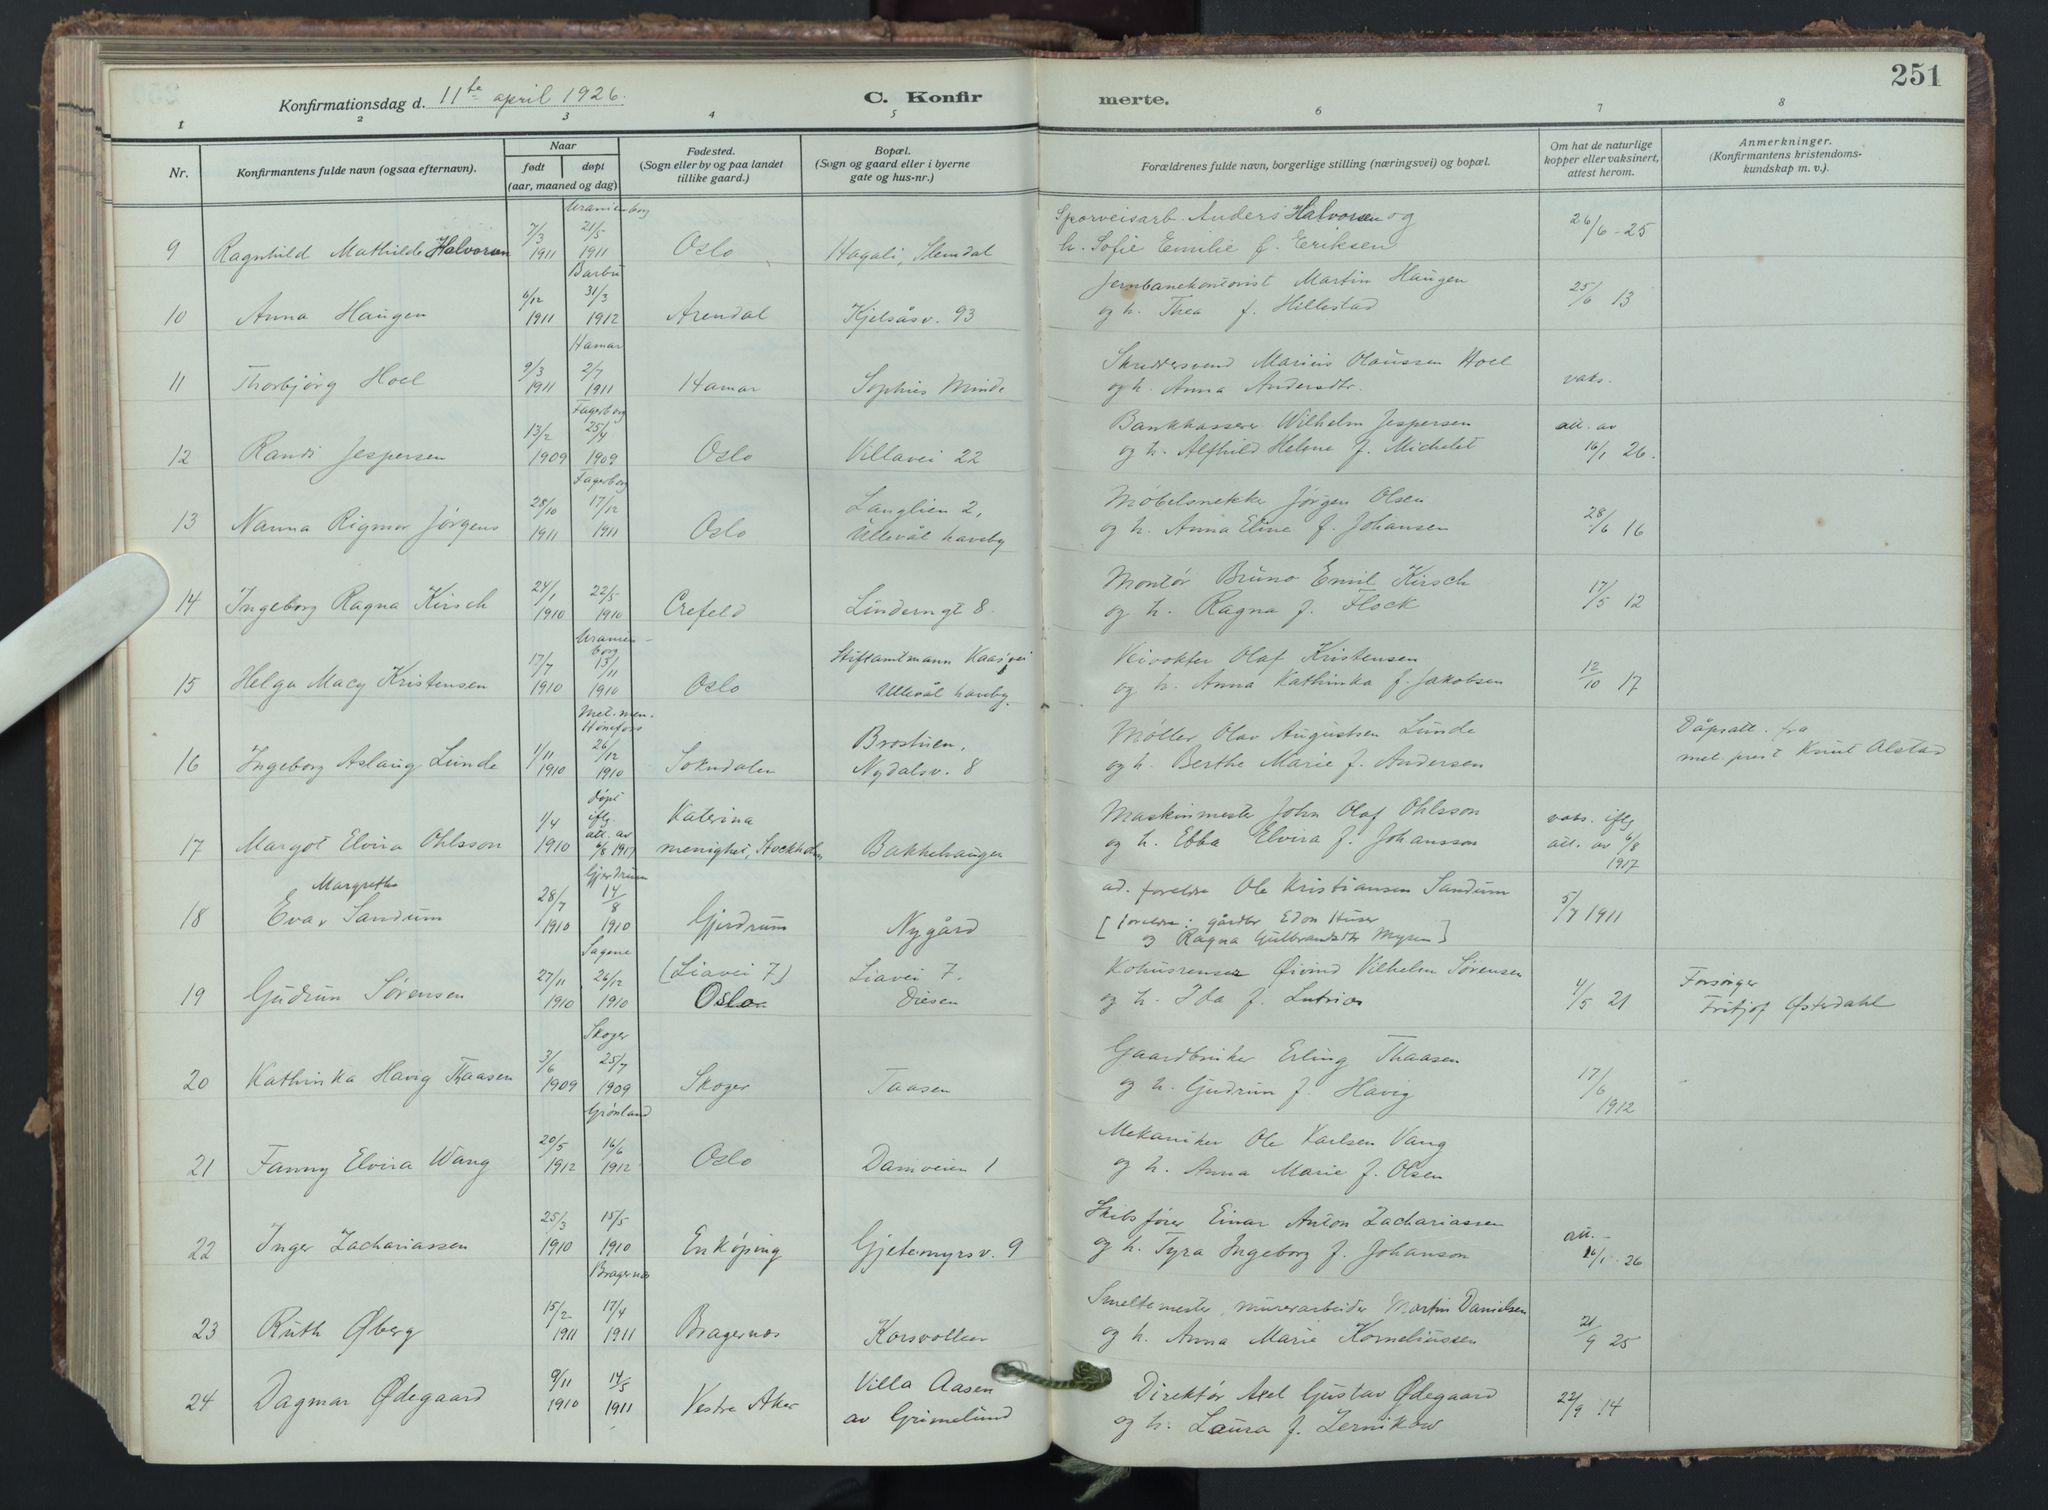 251
Konfirmationsdag d. 11te april 1926.
C. Konfir merte.
1 2 3 4 5 6 7 8
Nr.
Konfirmantens fulde navn (ogsaa efternavn).
Naar
født døpt
(aar, maaned og dag)
Fødested.
(Sogn eller by og paa landet
tillike gaard.)
Bopæl.
(Sogn og gaard eller i byerne
gate og hus-nr.)
Forældrenes fulde navn, borgerlige stilling (næringsvei) og bopæl.
Om hat de naturlige
kopper eller vaksinert,
attest herom.
Anmerkninger.
(Konfirmantens kristendoms-
kundskap m. v.).
Uranienborg
9 Ragnhild Mathilde Halvorsen 7/3 1911 21/5 1911 Oslo Hagali, Slemdal
Sporveisarb. Anders Halvorsen og
h. Sofie Emilie f. Eriksen
26/6-25
Barbu
10 Anna Haugen 6/12 1911 31/3 1912 Arendal Kjelsåsv. 93
Jernbanekontorist Martin Haugen
og h. Thea f. Hillestad
25/6 13
Hamar
11 Thorbjørg Hoel 9/3 1911 2/7 1911 Hamar Sophies Minde
Skreddersvend Marius Olaussen Hoel
og h. Anna Andersdtr.
vaks.
Fagerborg
12 Randi Jespersen 13/2 1909 25/4 1909 Oslo Villavei 22
Bankkasserer Wilhelm Jespersen
og h. Alfhild Helene f. Michelet
att. av
16/1 26.
Fagerborg
13 Nanna Rigmor Jørgens 28/10 1911 17/12 1911 Oslo
Langlien 2,
Ullevål haveby
Møbelsnekker Jørgen Olsen
og h. Anna Eline f. Johansen
28/6 16
14 Ingeborg Ragna Kirsch 24/1 1910 22/5 1910 Crefeld Linderngt 8.
Montør Bruno Emil Kirsch
og h. Ragna f. Flock
17/5 12
Uranien-
borg
15 Helga Macy Kristensen 17/7 1910 13/11 1910 Oslo
Stiftamtmann Kaas vei
Ullevål haveby.
Veivokter Olaf Kristensen
og h. Anna Kathinka f. Jakobsen
12/10 17
Met. men.
Hønefoss
16 Ingeborg Aslaug Lunde 1/11 1910 26/12 1910 Sokndalen
Brostuen,
Nydalsv. 8
Møller Olav Augustsen Lunde
og h. Berthe Marie f. Andersen
Dåpsatt. fra
met. prest Knut Alstad
17 Margot Elvira Ohlsson 1/4 1910
døpt
iflg.
att. av
6/8 1917
Katerina
menighet, Stockholm
Bakkehaugen
Maskinmester John Olaf Ohlsson
og h. Ebba Elvira f. Johansson
vaks. iflg
att. av 6/8
1917
Gjerdrum
18 Eva Margrethe Sandum 28/7 1910 14/8 1910 Gjerdrum Nygård
ad. foreldre Ole Kristiansen Sandum
[foreldre: gårdbr Edon Huser
og Ragna Gulbrandsdtr Myren]
5/7 1911
Sagene
19 Gudrun Sørensen 27/11 1910 26/12 1910
(Liavei 7)
Oslo
Liavei 7.
Diesen
Øivind Vilhelm Sørensen
og h. Ida f.
4/5 21
Forsørger
Fritjof Østerdahl
Skoger
20 Kathinka Havig Thaasen 3/6 1909 25/7 1909 Skoger Taasen
Gaardbruker Erling Thaasen
og h. Gudrun f. Havig
17/6
1912
Grønland
21 Fanny Elvira Wang 20/5 1912 16/6 1912 Oslo Damveien 1
Mekaniker Ole Karlsen Vang
og h. Anna Marie f. Olsen
22 Inger Zachariassen 25/3 1910 15/5 1910 Enköping Gjetemyrsv. 9
Skibsfører Einar Anton Zachariassen
og h. Tyra Ingeborg f. Johanson
att. -
16/1-26
Bragernæs
23 Ruth Øberg 15/2 1911 17/4 1911 Bragernæs Korsvollen
Smeltemester, murerarbeider Martin Danielsen
og h. Anna Marie Korneliussen
21/9 25
24 Dagmar Ødegaard 9/11 1910 14/5 1911 Vestre Aker
Villa Aasen
av Grimelund
Direktør Axel Gustav Ødegaard
og h. Laura f. Zernikow
22/9 14